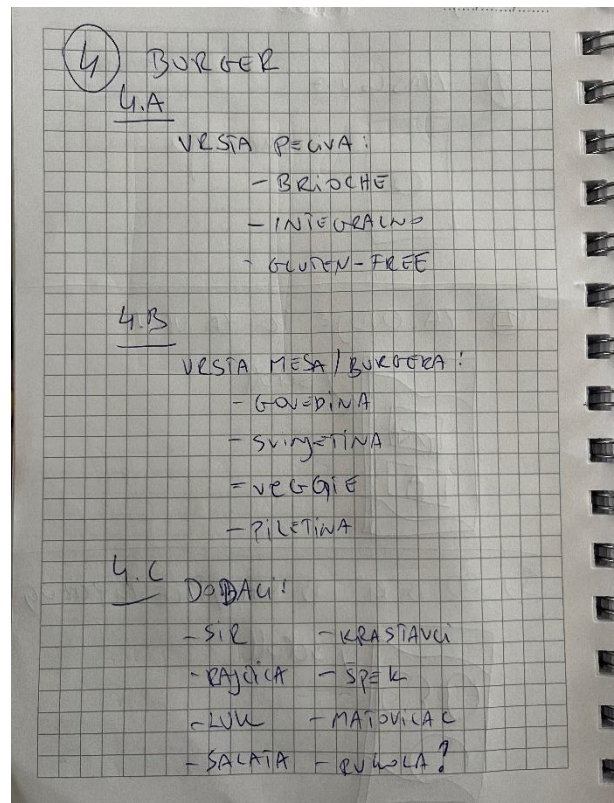 4 BURGER
4.A
VRSTA PECIVA:
- BRIOCHE
- INTEGRALNO
- GLUTEN-FREE
4.B
VRSTA MESA/BURGERA:
- GOVEDINA
- SVINJETINA
= VEGGIE
- PILETINA
4.C
DODACI:
- SIR - KRASTAVCI
- RAJČICA - ŠPEK
- LUK - MATOVILAC
- SALATA - RUKOLA?